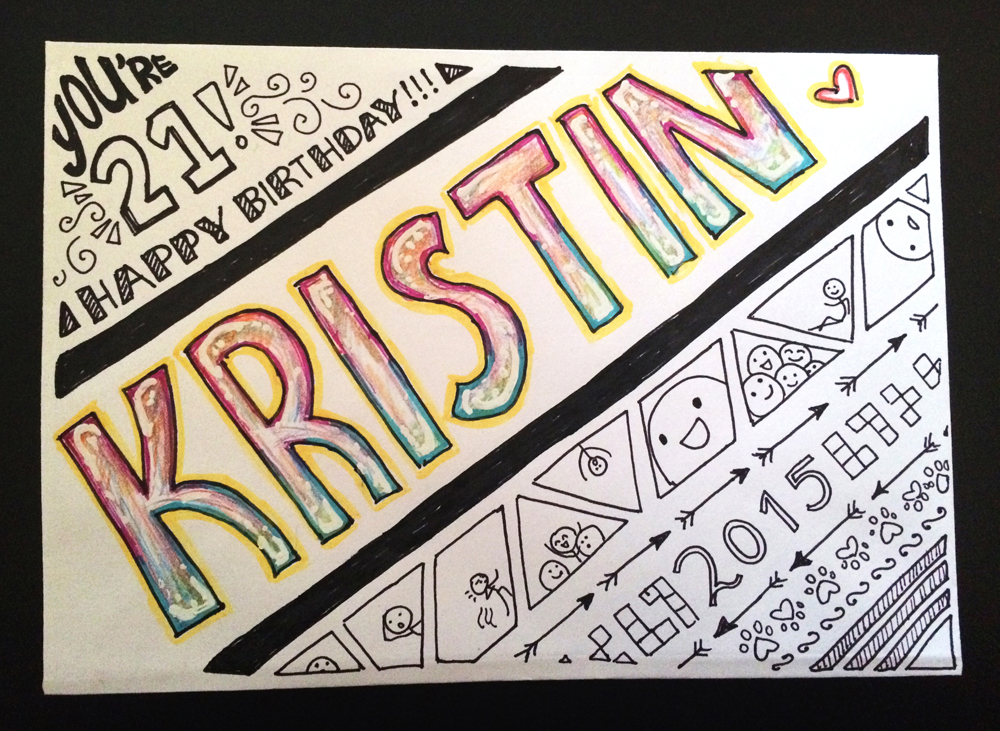 YOU'RE
21!
HAPPY BIRTHDAY!!!
KRISTIN
2015